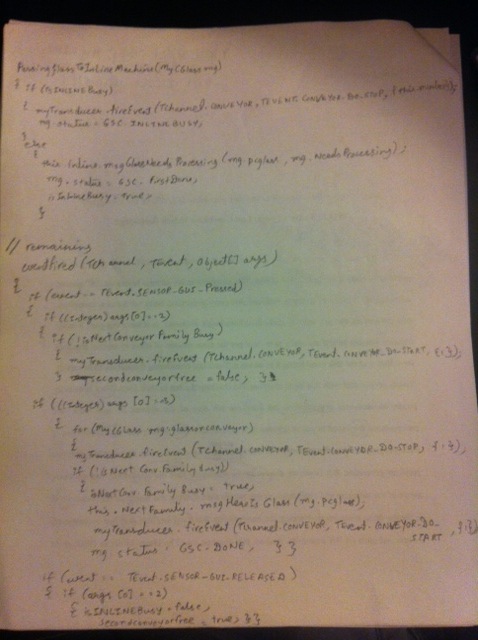 PassingGlassToInlineMachine(MyCGlass mg)
{ if (isINLINEBusy)
{ myTransducer.fireEvent(TChannel.CONVEYOR, TEVENT.CONVEYOR_DO_STOP,
mg.status = GSC.INLINEBUSY;
}
else
{
this.Inline.msgGlassNeedsProcessing(mg.pcglass, mg.NeedsProcessing);
mg.status = GSC.FirstDone;
isInlineBusy = true;
}
// remaining
eventFired(TChannel, TEvent, Object[] args)
{
if (event == TEvent.SENSOR_GUI_Pressed)
{ if ((Integer)args[0]==2)
{ if (!isNextConveyor Family Busy)
{ myTransducer.fireEvent(TChannel.CONVEYOR, TEvent.CONVEYOR_DO_START,
} secondconveyorfree = false; }
if ((Integer)args[0]
{ for (MyCGlass mg: glassonconveyor)
{ myTransducer.fireEvent(TChannel.CONVEYOR, TEvent.CONVEYOR_DO_STOP,
if (!isNext Conv.Family Busy)
{ isNextConv Family Busy = true;
this.NextFamily.msgHereIsGlass(mg.pcglass);
myTransducer.fireEvent(TChannel.CONVEYOR, TEvent.CONVEYOR_DO_
START,
mg status = GSC.DONE; } }
if (event == TEvent.SENSOR_GUI_RELEASED)
{ if (args[0]==2)
{ isINLINEBUSY = false;
secondconveyorfree = true; } }